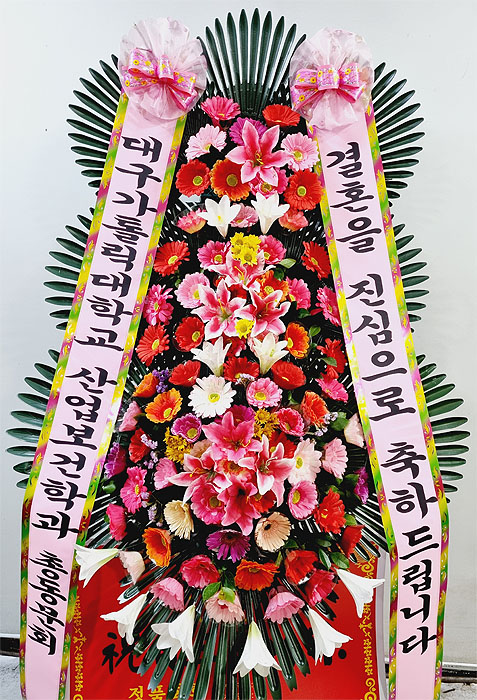 대구가톨릭대학교 산업보건학과 총동문회
결혼을 진심으로 축하드립니다
祝